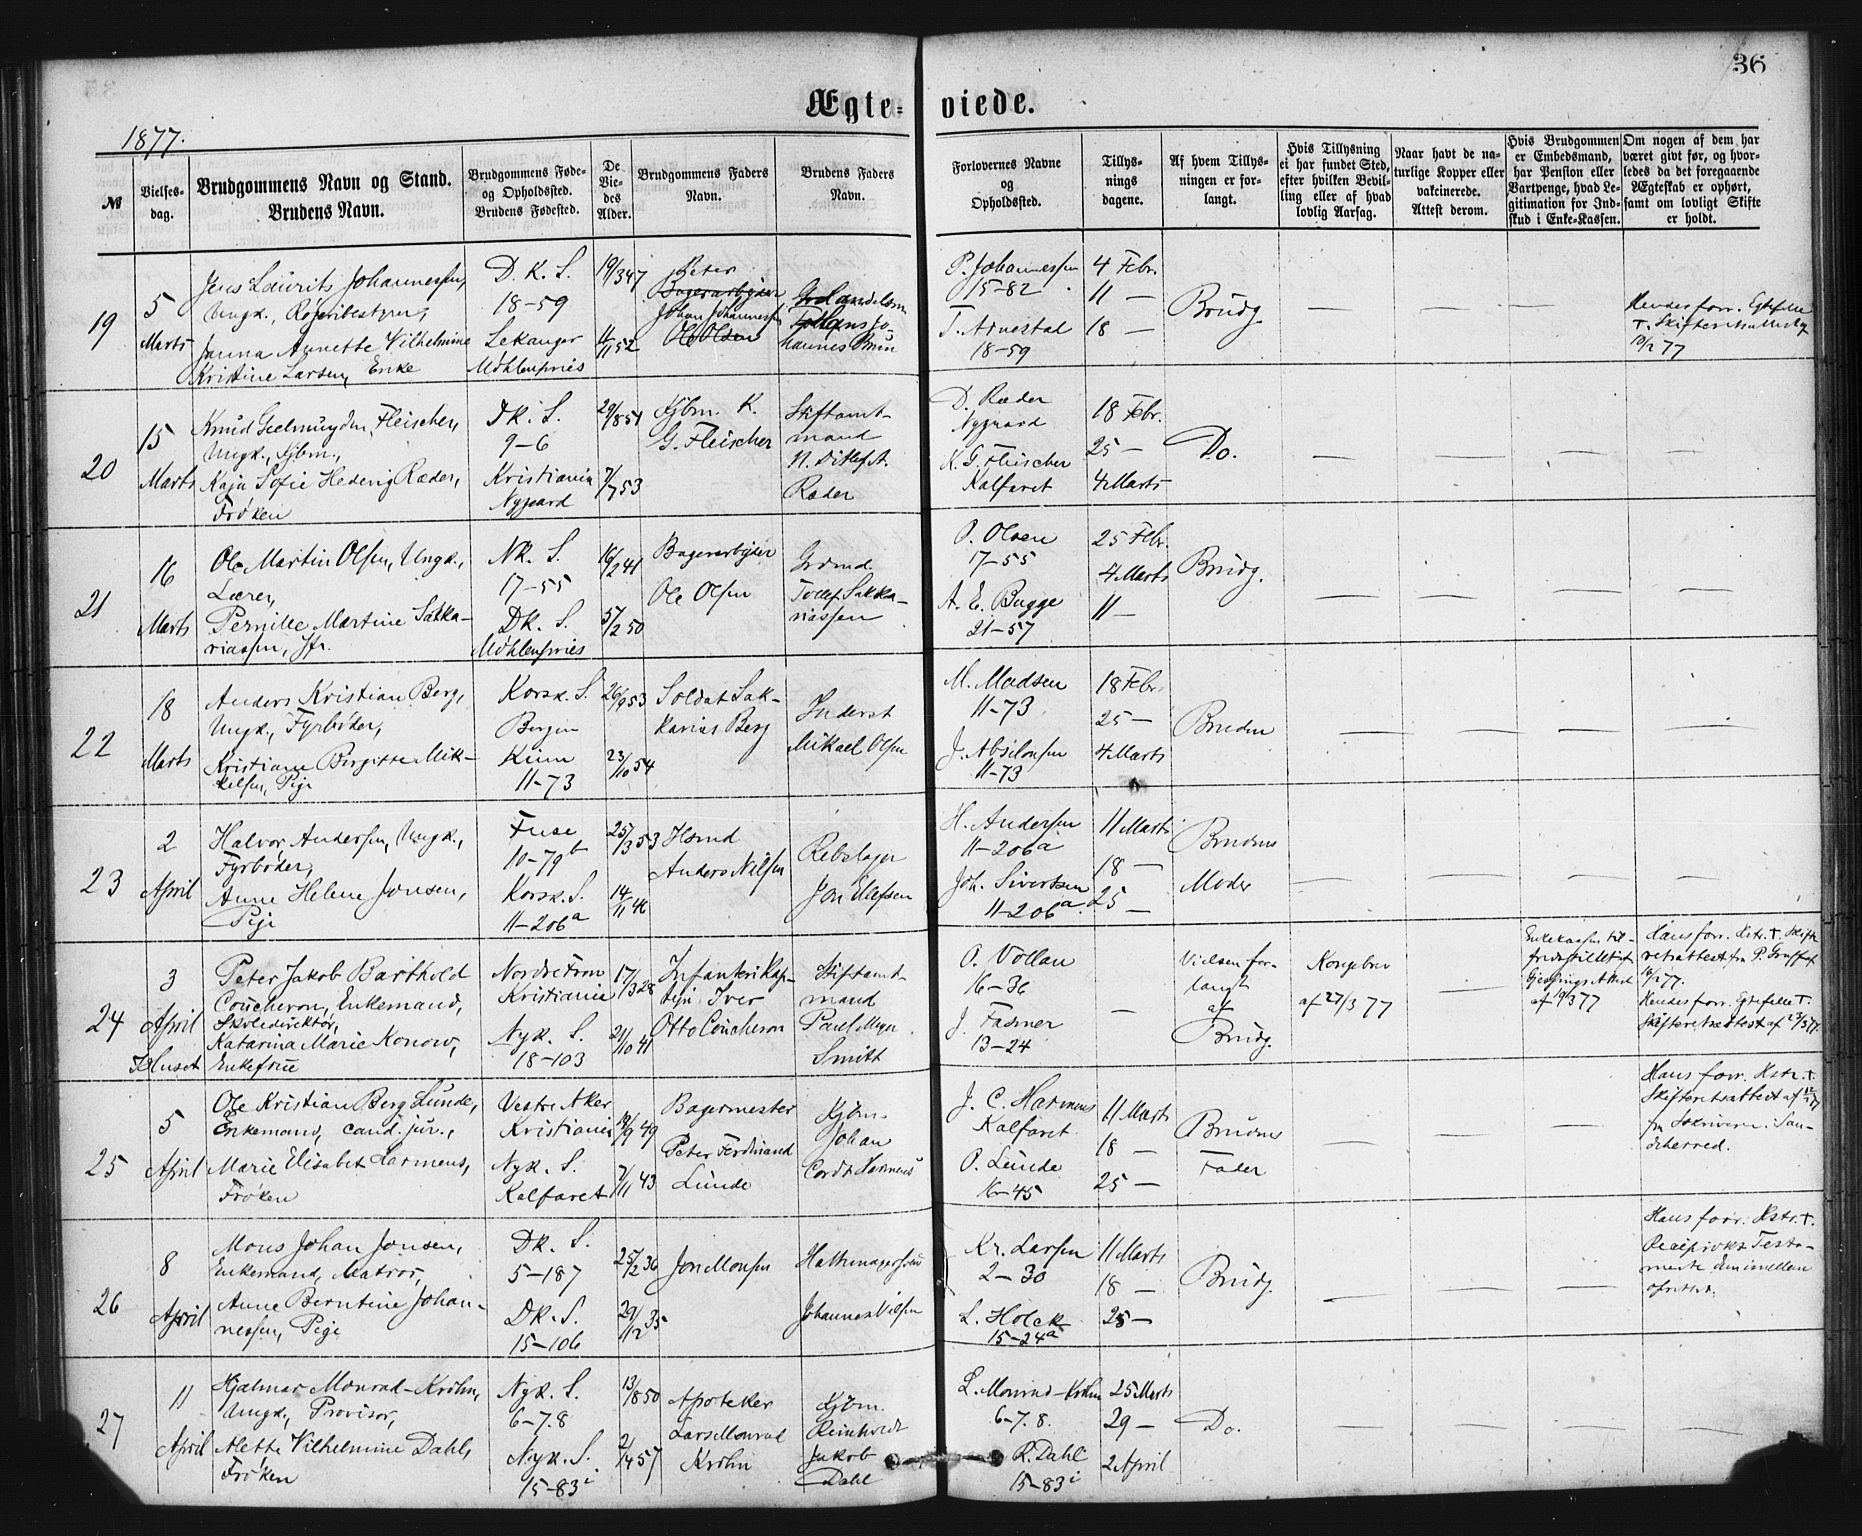 36
Ægte- viede.
1877.
№
Vielses-
dag.
Brudgommens Navn og Stand.
Brudens Navn.
Brudgommens Føde-
og Opholdssted.
Brudens Fødested.
De
Vie-
des
Alder.
Brudgommens Faders
Navn.
Brudens Faders
Navn.
Forlovernes Navne
og
Opholdssted.
Tillys-
nings
dagene.
Af hvem Tillys-
ningen er for-
langt.
Hvis Tillysning
ei har fundet Sted,
efter hvilken Bevil-
ling eller af hvad
lovlig Aarsag.
Naar havt de na-
turlige Kopper eller
vakcinerede.
Attest derom.
Hvis Brudgommen
er Embedsmand,
har Pension eller
Vartpenge, hvad Le-
gitimation for Ind-
skud i Enke-Kassen.
Om nogen af dem har
været givt før, og hvor-
ledes da det foregaaende
Ægteskab er ophørt,
samt om lovligt Skifte
er holdt.
19
5
Marts
Jens Laurits Johannessen,
Ungk.,
Janna Annette Vilhelmine
Kristine Larsen, Enke
D. K. S.
18-59
Lekanger
Møhlenpriis
19/3 47
4/11 52
Peter
Bagerarbeider
Johan Johannessen
Ole Olsen
Johannes Bruun
P. Johannessen
15-82
T. Arnestal
18-59
4 Febr.
11 —
18 —
Brudg.
Hendes forr. Egtefelle
†. Skifteretsattest af
10/2 77
20
15
Marts
Knud Geelmuyden Fleischer,
Ungk., Kjbm.,
Kaja Sofie Hedevig Ræder,
Frøken
Dk. S.
9-6
Kristiania
Nygaard
29/8 51
7/7 53
Kjbm. K.
G. Fleischer
Stiftamt-
mand
N. Ditlef A.
Ræder
D. Ræder
Nygaard
K. G. Fleischer
Kalfaret
18 Febr.
25 —
4 Marts
Do.
21
16
Marts
Ole Martin Olsen, Ungk.,
Lærer,
Pernille Martine Sakka-
riassen, Jfr.
Nk. S.
17-55
Dk. S.
Møhlenpriis
16/2 41
5/2 50
Bagerarbeider
Ole Olsen
Grdmd.
Tollef Sakka-
riassen
O. Olsen
17-55
A. E. Bugge
21-57
25 Febr.
4 Marts
11 —
Brudg.
22
18
Marts
Anders Kristian Berg,
Ungk., Fyrbøder,
Kristiane Birgitte Mik-
kelsen, Pige
Korsk. S.
Bergen
Kinn
11-73
26/9 53
23/10 54
Soldat Sak-
karias Berg
Inderst
Mikael Olsen
M. Madsen
11-73
J. Absilonsen
11-73
18 Febr.
25 —
4 Marts
Bruden
23
2
April
Halvor Andersen, Ungk.,
Fyrbøder,
Anne Helene Jonsen,
Pige
Fuse
10-79b
Korsk. S.
11-206a
25/3 53
14/11 46
Hsmd
Anders Nilsen
Rebslager
Jon Ellefsen
H. Andersen
11-206a
Joh. Sivertsen
11-206a
11 Marts
18 —
25 —
Brudens
Moder
24
3
April
I Huset
Peter Jakob Barthold
Coucheron, Enkemand,
Skoledirektør,
Katarina Marie Konow,
Enkefrue
Nordre Fron
Kristiania
Nyk. S.
18-103
17/3 28
21/10 41
Infanterikap-
tejn Iver
Otto Coucheron
Stiftamt-
mand
Paul Meyer
Smitt
O. Vollan
16-36
J. Fasmer
13-24
—
Vielsen for-
langt
af
Brudg.
Kongebrev
af 27/3 77
Enkekassen til-
fredsstillet
af 19/3 77
Hans forr. Hstr. †. Skifte-
retsattest fra
10/1 77.
Hendes forr. Egtefelle †.
Skifteretsattest af 23/3 77.
25
5
April
Ole Kristian Berg Lunde,
Enkemand, cand. jur.,
Marie Elisabet Harmens,
Frøken
Vestre Aker
Kristiania
Nyk. S.
Kalfaret
18/9 49
7/11 43
Bagermester
Peter Ferdinand
Lunde
Kjøbm.
Johan
Cordt Harmens
J. C. Harmens
Kalfaret
O. Lunde
16-45
11 Marts
18 —
25 —
Brudens
Fader
Hans forr. Hstr. †.
Skifteretsattest af
fra Sskriveren i San-
deherred.
26
8
April
Mons Johan Jonsen,
Enkemand, Matros,
Anne Berntine Johan-
nessen, Pige
Dk. S.
5-187
Dk. S.
15-106
25/2 36
29/12 35
Jon Monsen
Hattemagersvend
Johannes Nilsen
Kr. Larsen
2-30
L. Holck
15-24a
11 Marts
18 —
25 —
Brudg.
Hans forr. Hstr. †.
Reciprokt Testa-
mente dem imellem
oprettet.
27
11
April
Hjalmar Monrad-Krohn,
Ungk., Provisor,
Alette Vilhelmine Dahl,
Frøken
Nyk. S.
6-7.8
Nyk. S.
15-83i
13/8 50
2/4 57
Apoteker
Lars Monrad
Krohn
Kjøbm.
Reinholdt
Jakob
Dahl
L. Monrad-Krohn
6-7.8.
R. Dahl
15-83i
25 Marts
29 —
2 April
Do.